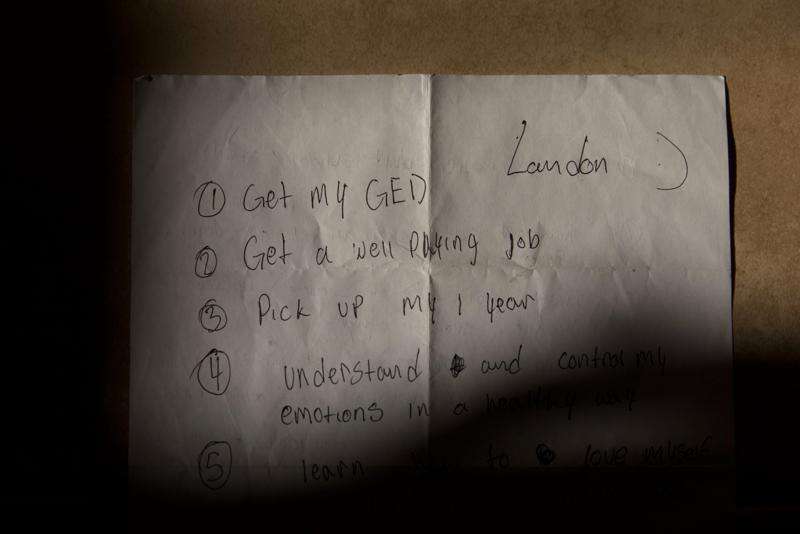 Landon :)
① Get my GED
② Get a well paying job
③ Pick up my 1 year
④ understand and control my
emotions in a healthy way
⑤ learn how to love myself